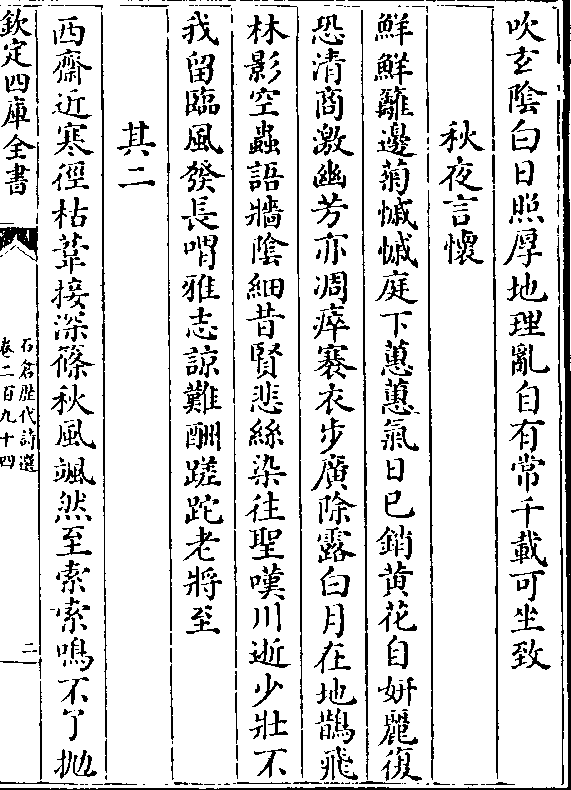 吹玄陰白日照厚地理亂自有常千載可坐致
秋夜言懷
鮮鮮籬邊菊慽慽庭下蕙蕙氣日已銷黄花自妍麗復
恐清商激幽芳亦凋瘁褰衣步廣除露白月在地鵲飛
林影空蟲語牆陰細昔賢悲絲染往聖嘆川逝少壯不
我留臨風發長喟雅志諒難酬蹉跎老將至
其二
西齋近寒徑枯葦接深篠秋風颯然至索索鳴不了抛
欽定四庫全書
石倉歴代詩選
卷二百九十四
二